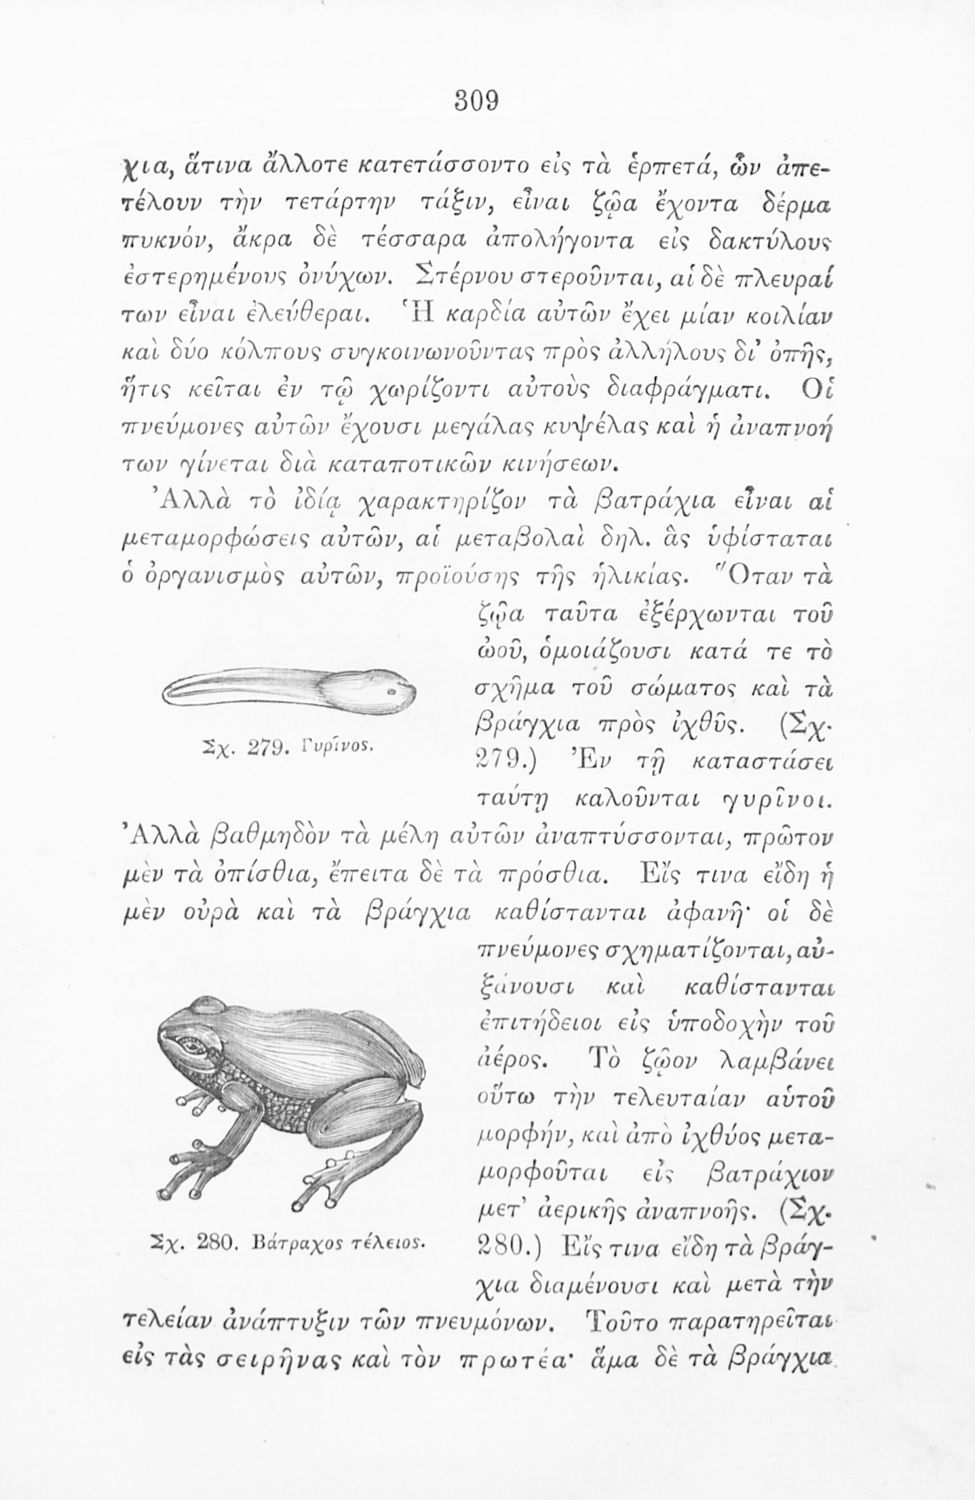 309
χια, ἅτινα ἄλλοτε κατετάσσοντο εἰς τὰ ἑρπετά, ὧν ἀπε-
τέλουν τὴν τετάρτην τάξιν, εἶναι ζῷα ἔχοντα δέρμα
πυκνόν, ἄκρα δὲ τέσσαρα ἀπολήγοντα εἰς δακτύλους
ἐστερημένους ὀνύχων. Στέρνου στεροῦνται, αἱ δὲ πλευραί
των εἶναι ἐλεύθεραι. Ἡ καρδία αὐτῶν ἔχει μίαν κοιλίαν
καὶ δύο κόλπους συγκοινωνοῦντας πρὸς ἀλλήλους δι’ ὀπῆς,
ἥτις κεῖται ἐν τῷ χωρίζοντι αὐτοὺς διαφράγματι. Οἱ
πνεύμονες αὐτῶν ἔχουσι μεγάλας κυψέλας καὶ ἡ ἀναπνοή
των γίνεται διὰ καταποτικῶν κινήσεων.
Ἀλλὰ τὸ ἰδίᾳ χαρακτηρίζον τὰ βατράχια εἶναι αἱ
μεταμορφώσεις αὐτῶν, αἱ μεταβολαὶ δηλ. ἃς ὑφίσταται
ὁ ὀργανισμὸς αὐτῶν, προϊούσης τῆς ἡλικίας. Ὅταν τὰ
ζῷα ταῦτα ἐξέρχωνται τοῦ
ὠοῦ, ὁμοιάζουσι κατά τε τὸ
σχῆμα τοῦ σώματος καὶ τὰ
βράγχια πρὸς ἰχθῦς. (Σχ.
279.) Ἐν τῇ καταστάσει
ταύτῃ καλοῦνται γυρῖνοι.
Σχ. 279. Γυρῖνος.
Ἀλλὰ βαθμηδὸν τὰ μέλη αὐτῶν ἀναπτύσσονται, πρῶτον
μὲν τὰ ὀπίσθια, ἔπειτα δὲ τὰ πρόσθια. Εἴς τινα εἴδη ἡ
μὲν οὐρὰ καὶ τὰ βράγχια καθίστανται ἀφανῆ· οἱ δὲ
πνεύμονες σχηματίζονται, αὐ-
ξάνουσι καὶ καθίστανται
ἐπιτήδειοι εἰς ὑποδοχὴν τοῦ
ἀέρος. Τὸ ζῷον λαμβάνει
οὕτω τὴν τελευταίαν αὑτοῦ
μορφήν, καὶ ἀπὸ ἰχθύος μετα-
μορφοῦται εἰς βατράχιον
μετ’ ἀερικῆς ἀναπνοῆς. (Σχ.
280.) Εἴς τινα εἴδη τὰ βράγ-
χια διαμένουσι καὶ μετὰ τὴν
Σχ. 280. Βάτραχος τέλειος.
τελείαν ἀνάπτυξιν τῶν πνευμόνων. Τοῦτο παρατηρεῖται
εἰς τὰς σειρῆνας καὶ τὸν πρωτέα· ἅμα δὲ τὰ βράγχια